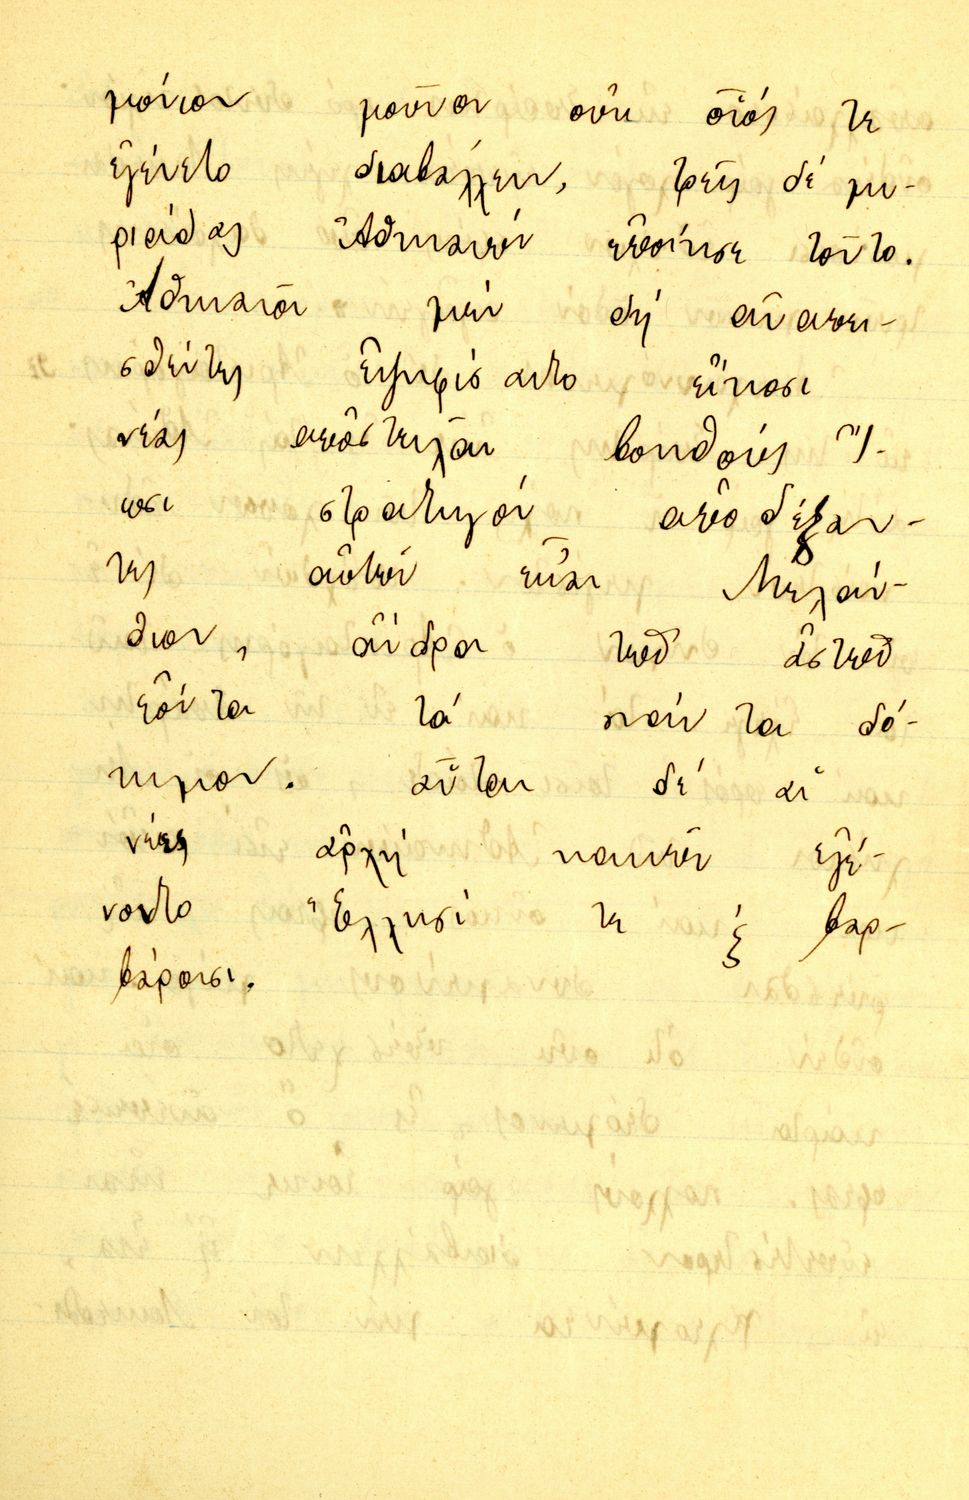 μόνιον μοῦνον οὐκ οἷός τε
ἐγένετο διαβάλλειν, τρεῖς δέ μυ-
ριάδας Ἀθηναίων ἐποίησε τοῦτο.
Ἀθηναῖοι μέν δή ἀναπει-
σθέντες ἐψηφίσαντο εἴκοσι
νέας ἀποστεῖλαι βοηθούς Ἴ-
ωσι στρατηγόν ἀποδέξαν-
τες αὐτῶν εἶναι Μελάν-
θιον, ἄνδρα τῶν ἀστῶν
ἐόντα τά πάντα δό-
κιμον. αὗται δέ αἱ
νέες ἀρχή κακῶν ἐγέ-
νοντο Ἕλλησί τε ϗ βαρ-
βάροισι.